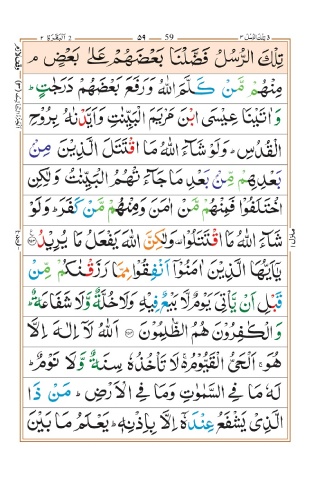 تلك الرسل ٣ 59 ٥٩ البقرة ٢
تِلْكَ الرُّسُلُ فَضَّلْنَا بَعْضَهُمْ عَلٰى بَعْضٍ ۘ
مِنْهُمْ مَّنْ كَلَّمَ اللّٰهُ وَرَفَعَ بَعْضَهُمْ دَرَجٰتٍ ؕ
وَاٰتَيْنَا عِيْسَى ابْنَ مَرْيَمَ الْبَيِّنٰتِ وَاَيَّدْنٰهُ بِرُوْحِ
الْقُدُسِ ؕ وَلَوْ شَآءَ اللّٰهُ مَا اقْتَتَلَ الَّذِيْنَ مِنْۢ
بَعْدِهِمْ مِّنْۢ بَعْدِ مَا جَآءَتْهُمُ الْبَيِّنٰتُ وَلٰكِنِ
اخْتَلَفُوْا فَمِنْهُمْ مَّنْ اٰمَنَ وَمِنْهُمْ مَّنْ كَفَرَ ؕ وَلَوْ
شَآءَ اللّٰهُ مَا اقْتَتَلُوْا وَلٰكِنَّ اللّٰهَ يَفْعَلُ مَا يُرِيْدُ ﴿۲۵۳﴾
يٰۤاَيُّهَا الَّذِيْنَ اٰمَنُوْۤا اَنْفِقُوْا مِمَّا رَزَقْنٰكُمْ مِّنْ
قَبْلِ اَنْ يَّاْتِيَ يَوْمٌ لَّا بَيْعٌ فِيْهِ وَلَا خُلَّةٌ وَّلَا شَفَاعَةٌ ؕ
وَالْكٰفِرُوْنَ هُمُ الظّٰلِمُوْنَ ﴿۲۵۴﴾ اَللّٰهُ لَاۤ اِلٰهَ اِلَّا
هُوَ ۚ اَلْحَيُّ الْقَيُّوْمُ ۚ لَا تَاْخُذُهٗ سِنَةٌ وَّلَا نَوْمٌ ؕ
لَهٗ مَا فِي السَّمٰوٰتِ وَمَا فِي الْاَرْضِ ؕ مَنْ ذَا
الَّذِيْ يَشْفَعُ عِنْدَهٗۤ اِلَّا بِاِذْنِهٖ ؕ يَعْلَمُ مَا بَيْنَ